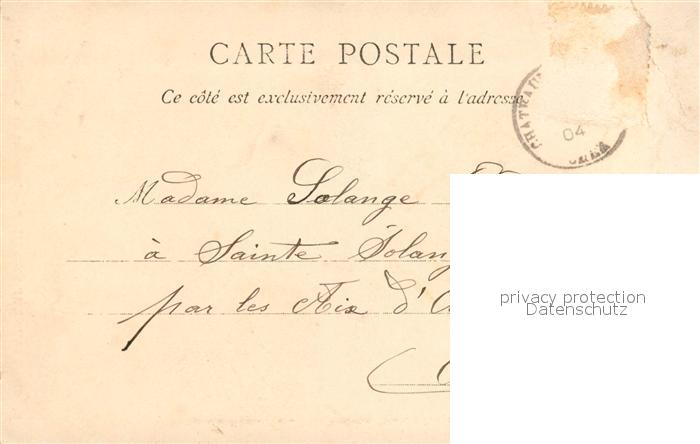 CARTE POSTALE
Ce côté est exclusivement réservé à l'adresse
CHATEAU
04
CHER
Madame Solange
à Sainte Solan
par les Aix d'
privacy protection
Datenschutz